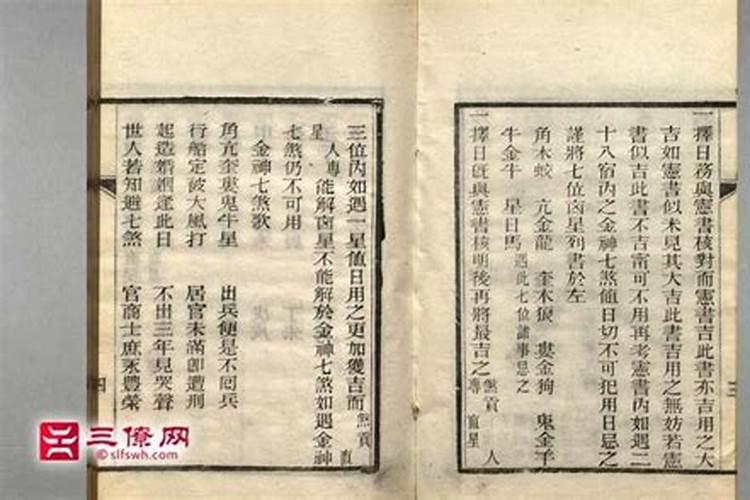 一擇日務與憲書核對而憲書吉此書亦吉用之大
吉如憲書似未見其大吉此書吉用之無妨若憲
書似吉此書不吉甯可不用再考憲書內如遇二
十八宿內之金神七煞值日切不可犯用日忌之
謹將七位凶星列書於左
角木蛟 亢金龍 奎木狼 婁金狗 鬼金羊
牛金牛 星日馬 遇此七位諸事忌之
一擇日既與憲書核明後再將最吉之 煞貢 專 直星 人
三
三位內如遇一星值日用之更加獲吉而 煞貢 直
星 人專 能解凶星不能解於金神七煞如遇金神
七煞仍不可用
金神七煞歌
角亢奎婁鬼牛星 出兵便是不回兵
行船定被大風打 居官未滿即遭刑
起造婚姻逢此日 不出三年見哭聲
世人若知避七煞 官商士庶永豐榮
四
三僚网
©slfswh.com